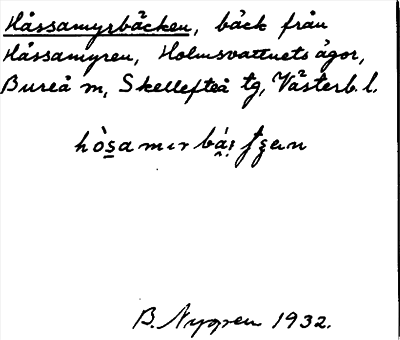 Håssamyrbäcken, bäck från
Håssamyren, Holmsvattnets ägor,
Bureå m, Skellefteå tg, Västerb. l.
B. Nygren 1932.